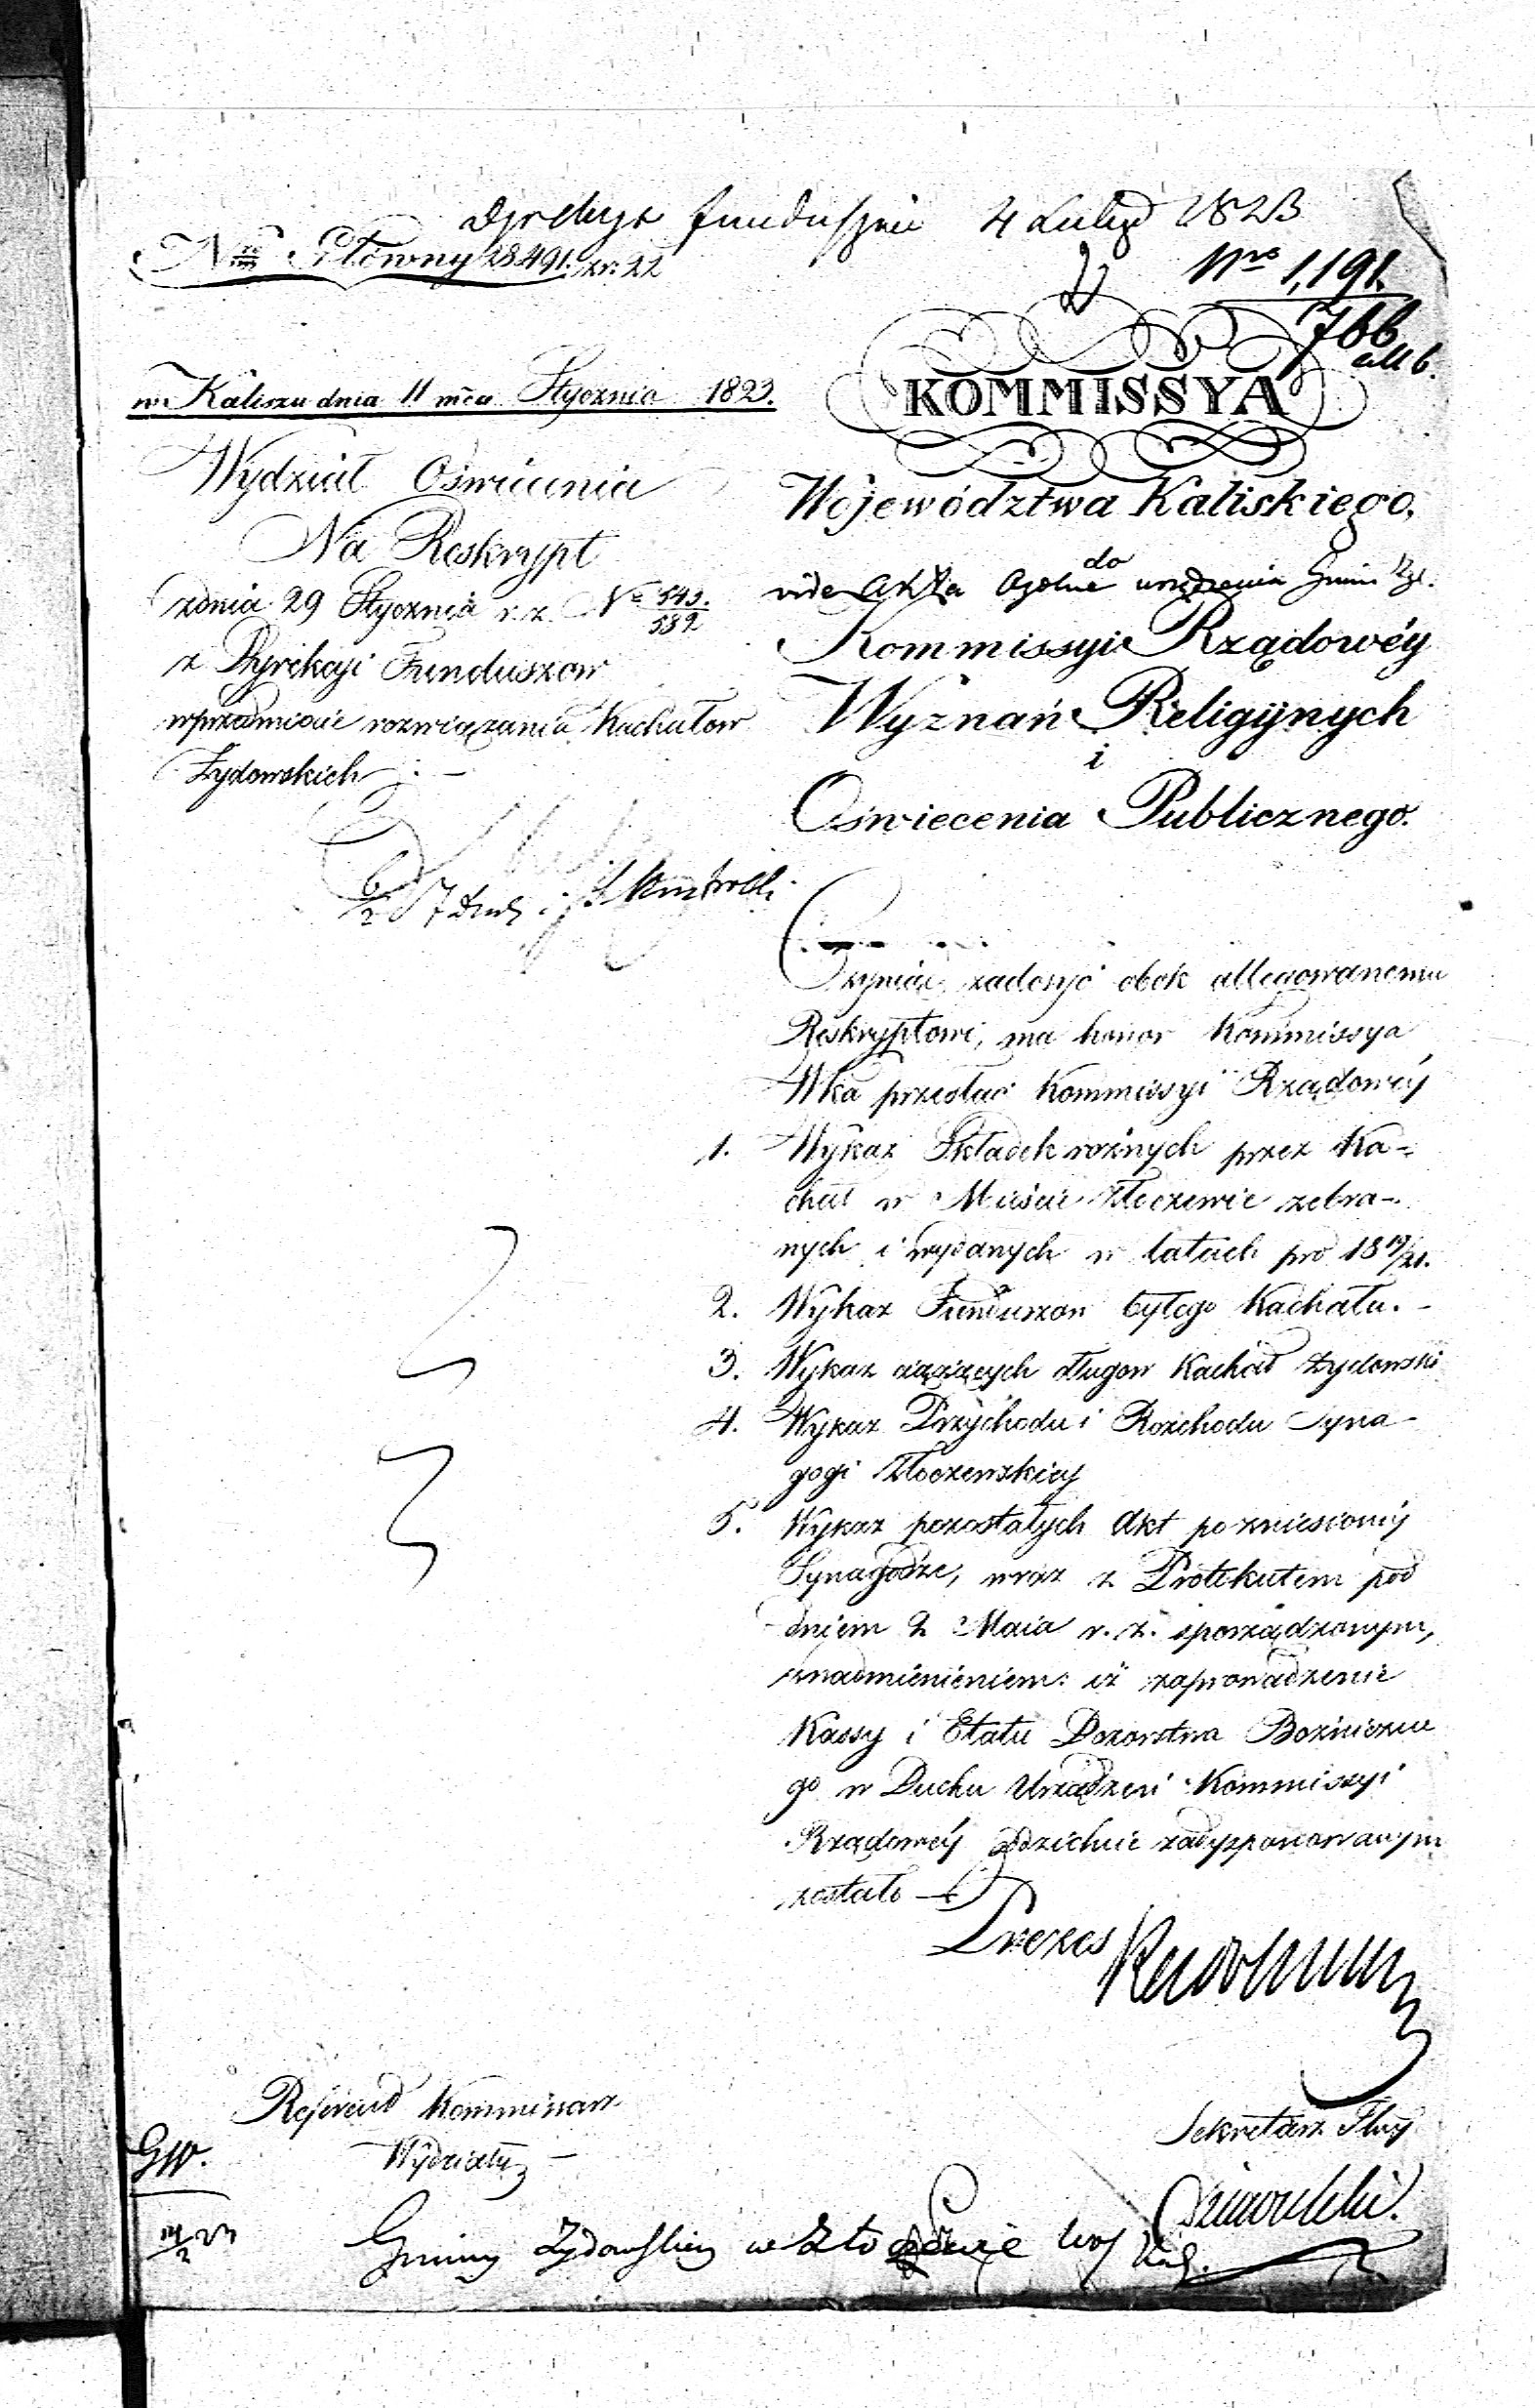 Dyrekcya funduszów 4 Luteg 1823
Nro Główny 28491. zr: 22
Nro 1,191.
766
all 6.
w Kaliszu dnia 11 mca Stycznia 1823.
KOMMISSYA
Województwa Kaliskiego,
Wydział Oświecenia
Na Reskrypt
zdnia 29 Stycznia r. z. No 543.
582
z Dyrekcyi Funduszow
wprzedmiocie rozwiązania Kachałow
Żydowskich
vide Akta Ogolne urządzenia Gmin Żyd.
do
Kommissyi Rządowéy
Wyznań Religiynych
i
Oświecenia Publicznego.
Czyniąc zadosyć obok allegowanemu
Reskryptowi, ma honor Kommissya
Wka przesłać Kommissyi Rządowéy
1. Wykaz Składek rożnych przez Ka-
chał w Mieście Złoczewie zebra-
nych i wydanych w latach pro 18 19/21.
2. Wykaz Funduszow byłego Kachału.
3. Wykaz ciążących długow Kachał Żydowski
4. Wykaz Przychodu i Rozchodu Syna-
gogi Złoczewskiey
5. Wykaz pozostałych Akt po zniesionéy
Synagodze, wraz z Protokułem pod
dniem 2 Maia r. z. sporządzonym,
znadmienieniem: iż zaprowadzenie
Kassy i Etatu Dozorstwa Bożniczne
go w Duchu Urządzeń Kommissyi
Rządowéy zadysponowanym
zostało
Prezes
Referend Kommissarz
Wydziału
Sekretarz Jlny
GW.
14/2 23
Gminy Żydowskiey w Złoczewie Woj Kal.